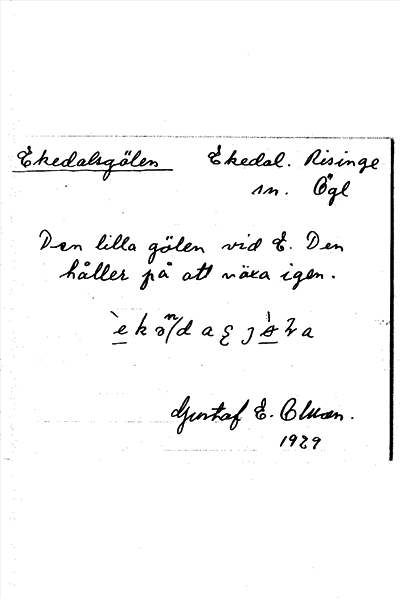 Ekedalsgölen Ekedal. Risinge
sn. Ögl
Den lilla gölen vid E. Den
håller på att växa igen.
Gustaf E.
1929